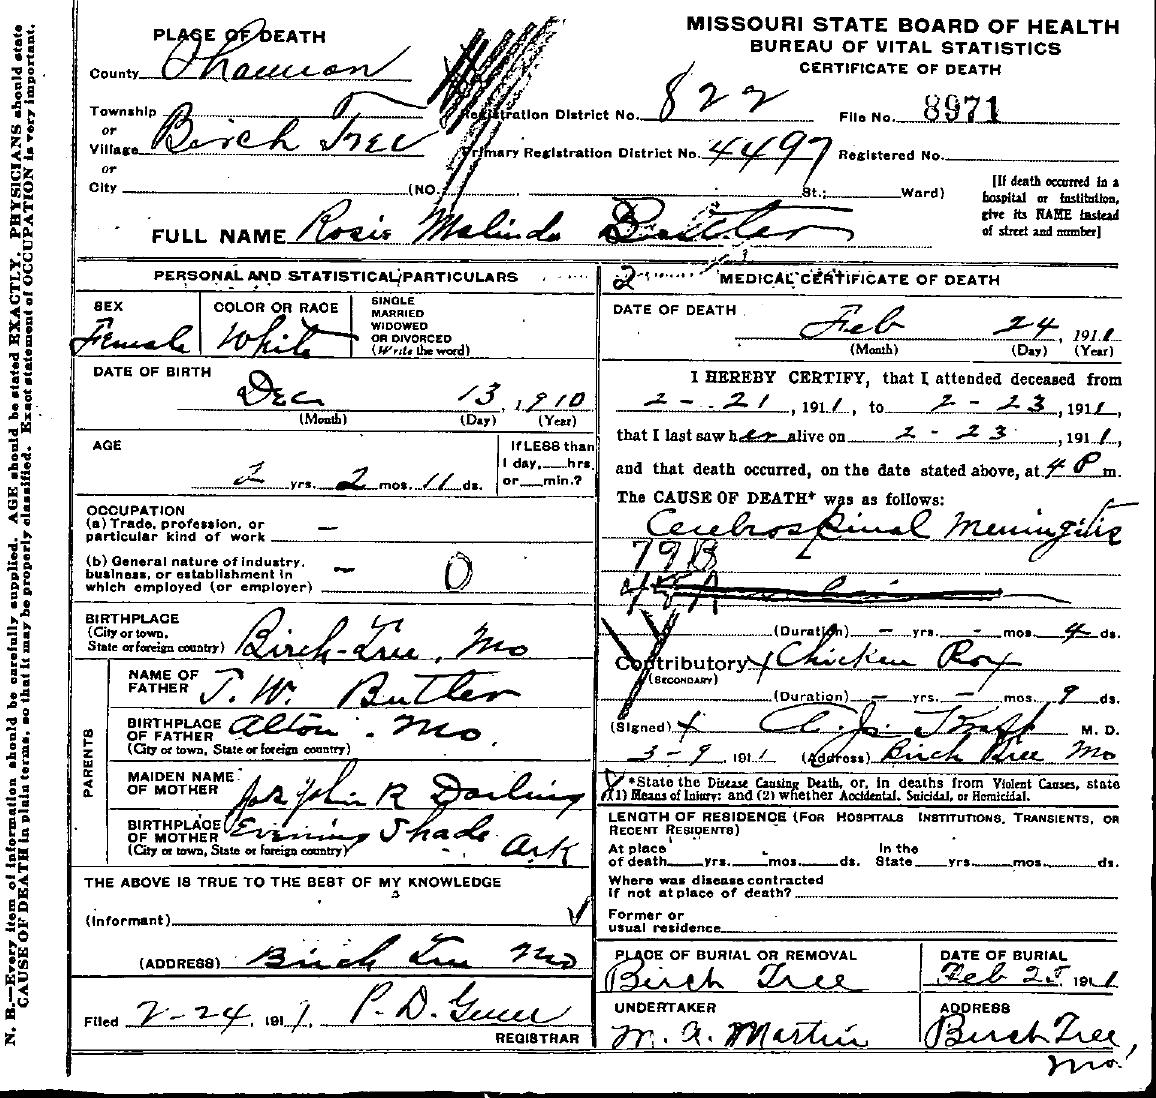 N. B.—Every item of information should be carefully supplied. AGE should be stated EXACTLY. PHYSICIANS should state
CAUSE OF DEATH in plain terms, so that it may be properly classified. Exact statement of OCCUPATION is very important.
MISSOURI STATE BOARD OF HEALTH
BUREAU OF VITAL STATISTICS
CERTIFICATE OF DEATH
PLACE OF DEATH
County Shannon
Township
or
Village Birch Tree
or
City (NO. St.; Ward)
Registration District No. 822
File No. 8971
Primary Registration District No. 4497
Registered No.
[If death occurred in a
hospital or institution,
give its NAME instead
of street and number]
FULL NAME Rosie Malinda Butler
PERSONAL AND STATISTICAL PARTICULARS
SEX
Female
COLOR OR RACE
White
SINGLE
MARRIED
WIDOWED
OR DIVORCED
(Write the word)
DATE OF BIRTH
Dec 13, 1910
(Month) (Day) (Year)
AGE
2 yrs. 2 mos. 11 ds.
If LESS than
1 day, hrs.
or min.?
OCCUPATION
(a) Trade, profession, or
particular kind of work –
(b) General nature of industry,
business, or establishment in
which employed (or employer) – 0
BIRTHPLACE
(City or town,
State or foreign country) Birch Tree, Mo
PARENTS
NAME OF
FATHER J. W. Butler
BIRTHPLACE
OF FATHER Alton, Mo.
(City or town, State or foreign country)
MAIDEN NAME
OF MOTHER R Darling
BIRTHPLACE
OF MOTHER Evening Shade Ark
(City or town, State or foreign country)
THE ABOVE IS TRUE TO THE BEST OF MY KNOWLEDGE
(Informant)
(ADDRESS) Birch Tree Mo
Filed 2-24, 1911, P. D.
REGISTRAR
2 MEDICAL CERTIFICATE OF DEATH
DATE OF DEATH
Feb 24, 1911
(Month) (Day) (Year)
I HEREBY CERTIFY, that I attended deceased from
2-21, 1911, to 2-23, 1911,
that I last saw her alive on 2-23, 1911,
and that death occurred, on the date stated above, at 4 P m.
The CAUSE OF DEATH* was as follows:
Cerebrospinal Meningitis
79B
(Duration) – yrs. – mos. 4 ds.
Contributory Chicken Pox
(SECONDARY)
(Duration) – yrs. – mos. 9 ds.
(Signed) M. D.
3-9, 1911 (Address) Birch Tree Mo
*State the Disease Causing Death, or, in deaths from Violent Causes, state
(1) Means of Injury; and (2) whether Accidental, Suicidal, or Homicidal.
LENGTH OF RESIDENCE (FOR HOSPITALS INSTITUTIONS, TRANSIENTS, OR
RECENT RESIDENTS)
At place
of death yrs. mos. ds.
In the
State yrs. mos. ds.
Where was disease contracted
if not at place of death?
Former or
usual residence
PLACE OF BURIAL OR REMOVAL
Birch Tree
DATE OF BURIAL
Feb 25 1911
UNDERTAKER
M. A. Martin
ADDRESS
Birch Tree,
Mo.